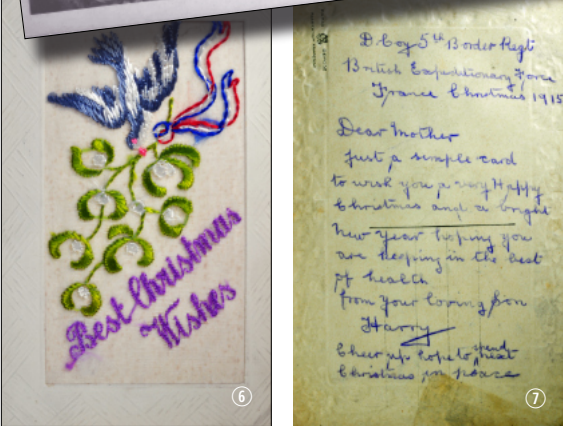 Best Christmas
Wishes
6
D Coy 5th Border Regt
British Expeditionary Force
France Christmas 1915
Dear Mother
Just a simple card
to wish you a very Happy
Christmas and a bright
New Year hoping you
are keeping in the best
of health
from your loving Son
Harry
Cheer up hope to spend next
Christmas in peace
7